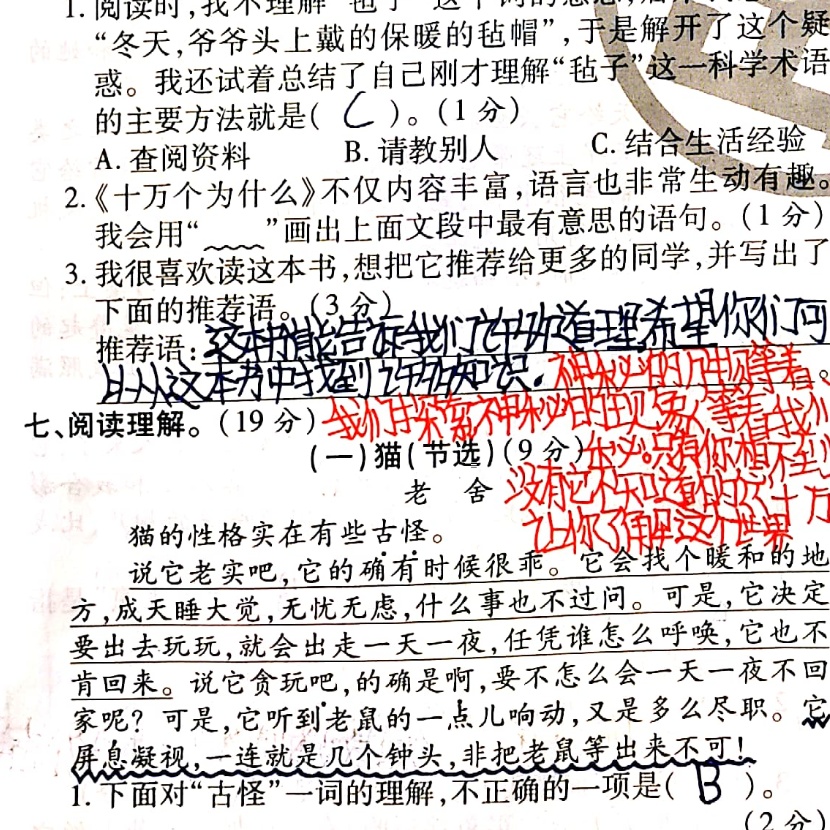 1. 阅读时,我不理解“毡子”这个词的意思,
“冬天,爷爷头上戴的保暖的毡帽”,于是解开了这个疑
惑。我还试着总结了自己刚才理解“毡子”这一科学术语
的主要方法就是( C )。(1分)
A. 查阅资料 B. 请教别人 C. 结合生活经验
2.《十万个为什么》不仅内容丰富,语言也非常生动有趣。
我会用“﹏﹏”画出上面文段中最有意思的语句。(1分)
3. 我很喜欢读这本书,想把它推荐给更多的同学,并写出了
下面的推荐语。(3分)
推荐语: 这本书能告诉我们许多道理希望你们可
以从这本书中找到许多知识. 神秘的 等着
七、阅读理解。(19分) 我们去探索神秘的 等着我们
(一)猫(节选)(9分) 只有你想不到
老 舍 没有它不知道的 十万
猫的性格实在有些古怪。 让你了解这个世界
说它老实吧,它的确有时候很乖。它会找个暖和的地
方,成天睡大觉,无忧无虑,什么事也不过问。可是,它决定
要出去玩玩,就会出走一天一夜,任凭谁怎么呼唤,它也不
肯回来。说它贪玩吧,的确是啊,要不怎么会一天一夜不回
家呢?可是,它听到老鼠的一点儿响动,又是多么尽职。它
屏息凝视,一连就是几个钟头,非把老鼠等出来不可!
1. 下面对“古怪”一词的理解,不正确的一项是( B )。
(2分)